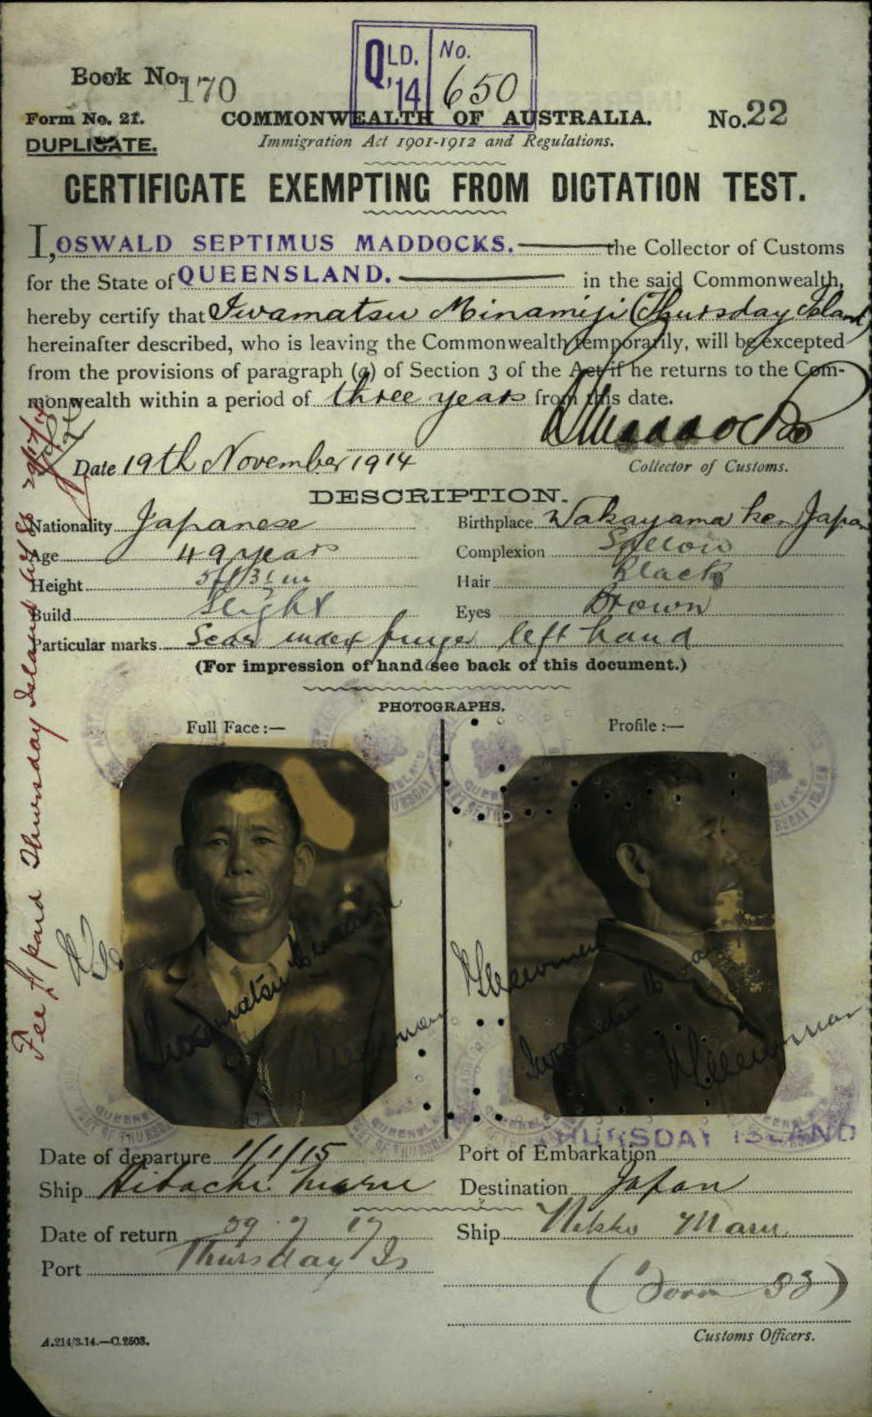 QLD. No.
'14 650
Book No. 170
Form No. 21. COMMONWEALTH OF AUSTRALIA. No. 22
DUPLICATE. Immigration Act 1901-1912 and Regulations.
CERTIFICATE EXEMPTING FROM DICTATION TEST.
I, OSWALD SEPTIMUS MADDOCKS. the Collector of Customs
for the State of QUEENSLAND. in the said Commonwealth,
hereby certify that Iwamatsu Minamiji (Thursday Island)
hereinafter described, who is leaving the Commonwealth temporarily, will be excepted
from the provisions of paragraph (a) of Section 3 of the Act if he returns to the Com-
monwealth within a period of three years from this date.
Maddocks
Date 19th November 1914 Collector of Customs.
DESCRIPTION.
Nationality Japanese Birthplace Wakayama ken Japan
Age 49 years Complexion Sallow
Height 5 ft 3½ in Hair Black
Build Slight Eyes Brown
Particular marks Scar index finger left hand
(For impression of hand see back of this document.)
PHOTOGRAPHS.
Full Face :— Profile :—
Fee £1 paid Thursday Island
THURSDAY ISLAND
Date of departure 1/1/15 Port of Embarkation
Ship Hitachi Maru Destination Japan
Date of return 29 7 17 Ship Nikko Maru
Port Thursday Is
(Form 33)
A.214/3.14.—C.2503. Customs Officers.